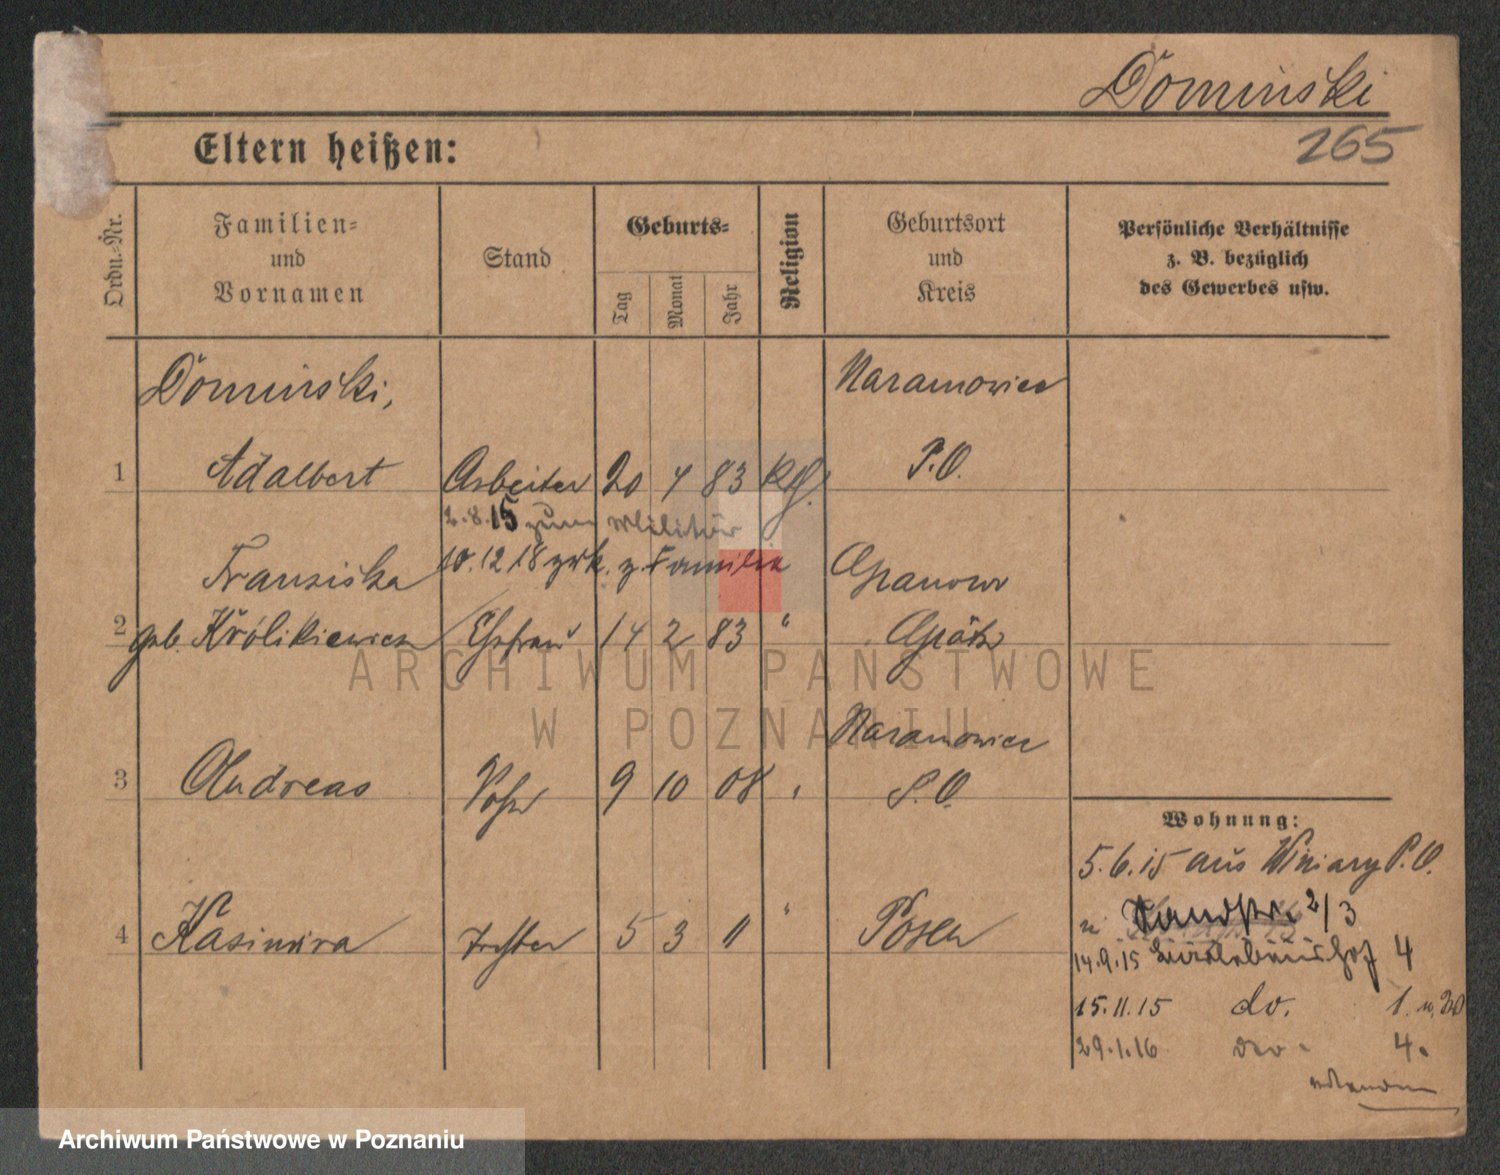 Dominski
265
Eltern heißen:
Ordn.-Nr.
Familien-
und
Vornamen
Stand
Geburts-
Tag
Monat
Jahr
Religion
Geburtsort
und
Kreis
Persönliche Verhältnisse
z. B. bezüglich
des Gewerbes usw.
Dominski,
Naramowice
1 Adalbert Arbeiter 20 4 83 kth. P.O.
2.8.15 zum Militär
10.12.18 zrk. z. Familie
Franziska
2 geb. Królikiewicz Ehefrau 14 2 83 "
ARCHIWUM PAŃSTWOWE
W POZNANIU
Naramowice
3 Andreas Sohn 9 10 08 " P.O.
Wohnung:
5.6.15 aus Winiary P.O.
4 Kasimira Tochter 5 3 11 " Posen
n 2/3
14.9.15 4
15.11.15 do. 1.
29.1.16 do 4.
Archiwum Państwowe w Poznaniu